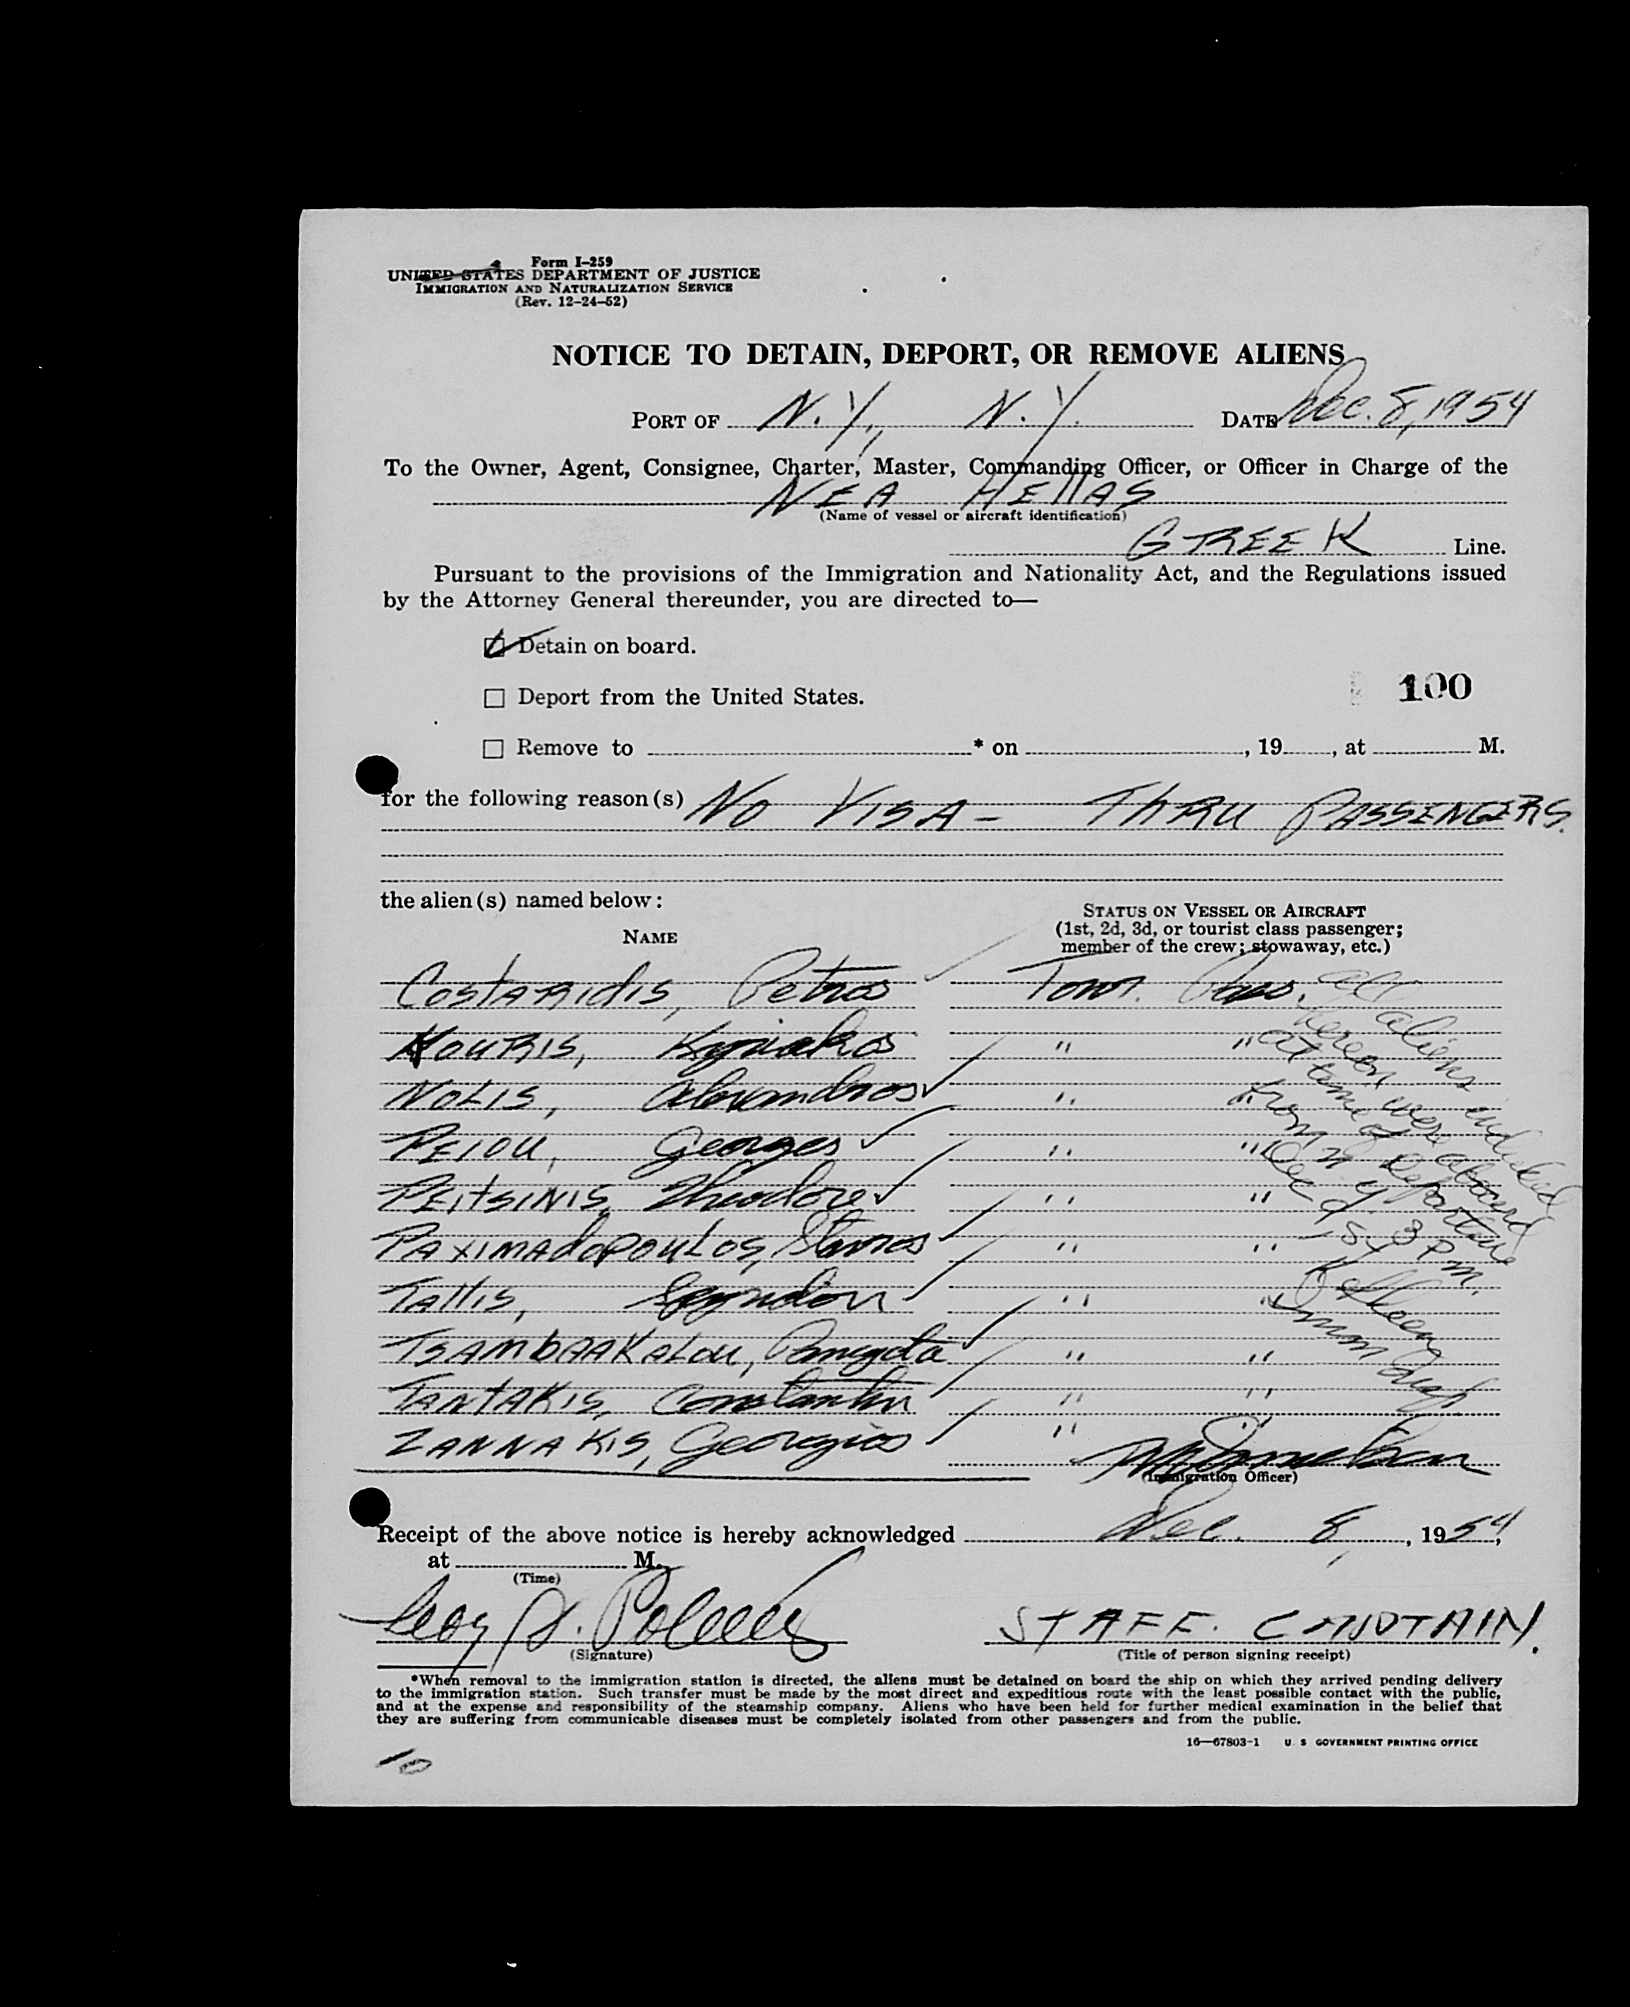 Form I-259
UNITED STATES DEPARTMENT OF JUSTICE
IMMIGRATION AND NATURALIZATION SERVICE
(Rev. 12-24-52)
NOTICE TO DETAIN, DEPORT, OR REMOVE ALIENS
PORT OF N.Y., N.Y. DATE Dec. 8, 1954
To the Owner, Agent, Consignee, Charter, Master, Commanding Officer, or Officer in Charge of the
NEA HEllAS
(Name of vessel or aircraft identification)
GREEK Line.
Pursuant to the provisions of the Immigration and Nationality Act, and the Regulations issued
by the Attorney General thereunder, you are directed to—
Detain on board.
Deport from the United States.
100
Remove to * on , 19 , at M.
for the following reason(s) NO VISA - THRU PASSENGERS.
the alien(s) named below:
STATUS ON VESSEL OR AIRCRAFT
(1st, 2d, 3d, or tourist class passenger;
member of the crew; stowaway, etc.)
NAME
COSTARIDIS, Petros Tour. Pass.
KOURIS, Kyriakos " "
NOLIS, Alexandros " "
PEIOU, Georges " "
PEITSINIS, Theodore " "
PAXIMADOPOULOS, Stavros " "
TALLIS, " "
TSAMBAAKALOU, " "
TANTAKIS, Constantin " "
ZANNAKIS, Georgios " "
all aliens included
hereon were aboard
at time of departure
from N.Y. 3 P.m.
Dec 9 54
(Immigration Officer)
Receipt of the above notice is hereby acknowledged Dec. 8, 1954,
at M.
(Time)
STAFF. CAPTAIN.
(Signature) (Title of person signing receipt)
*When removal to the immigration station is directed, the aliens must be detained on board the ship on which they arrived pending delivery
to the immigration station. Such transfer must be made by the most direct and expeditious route with the least possible contact with the public,
and at the expense and responsibility of the steamship company. Aliens who have been held for further medical examination in the belief that
they are suffering from communicable diseases must be completely isolated from other passengers and from the public.
16—67803-1 U. S. GOVERNMENT PRINTING OFFICE
10